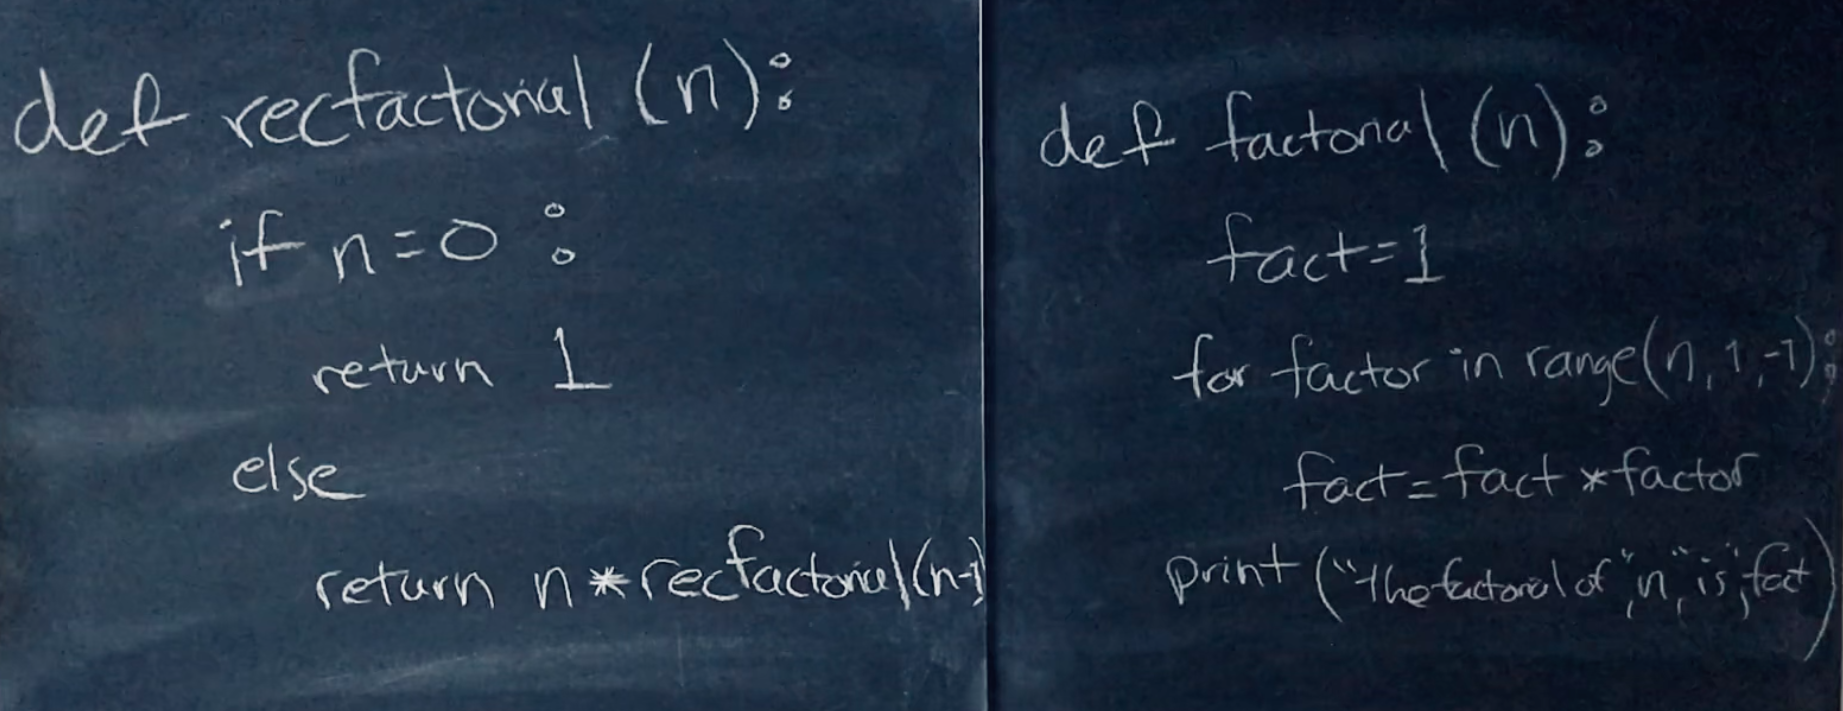 def recfactorial (n):
if n=0 :
return 1
else
return n*recfactorial(n-1)
def factorial (n):
fact=1
for factor in range(n, 1, -1):
fact=fact*factor
print ("The factorial of", n, "is", fact)